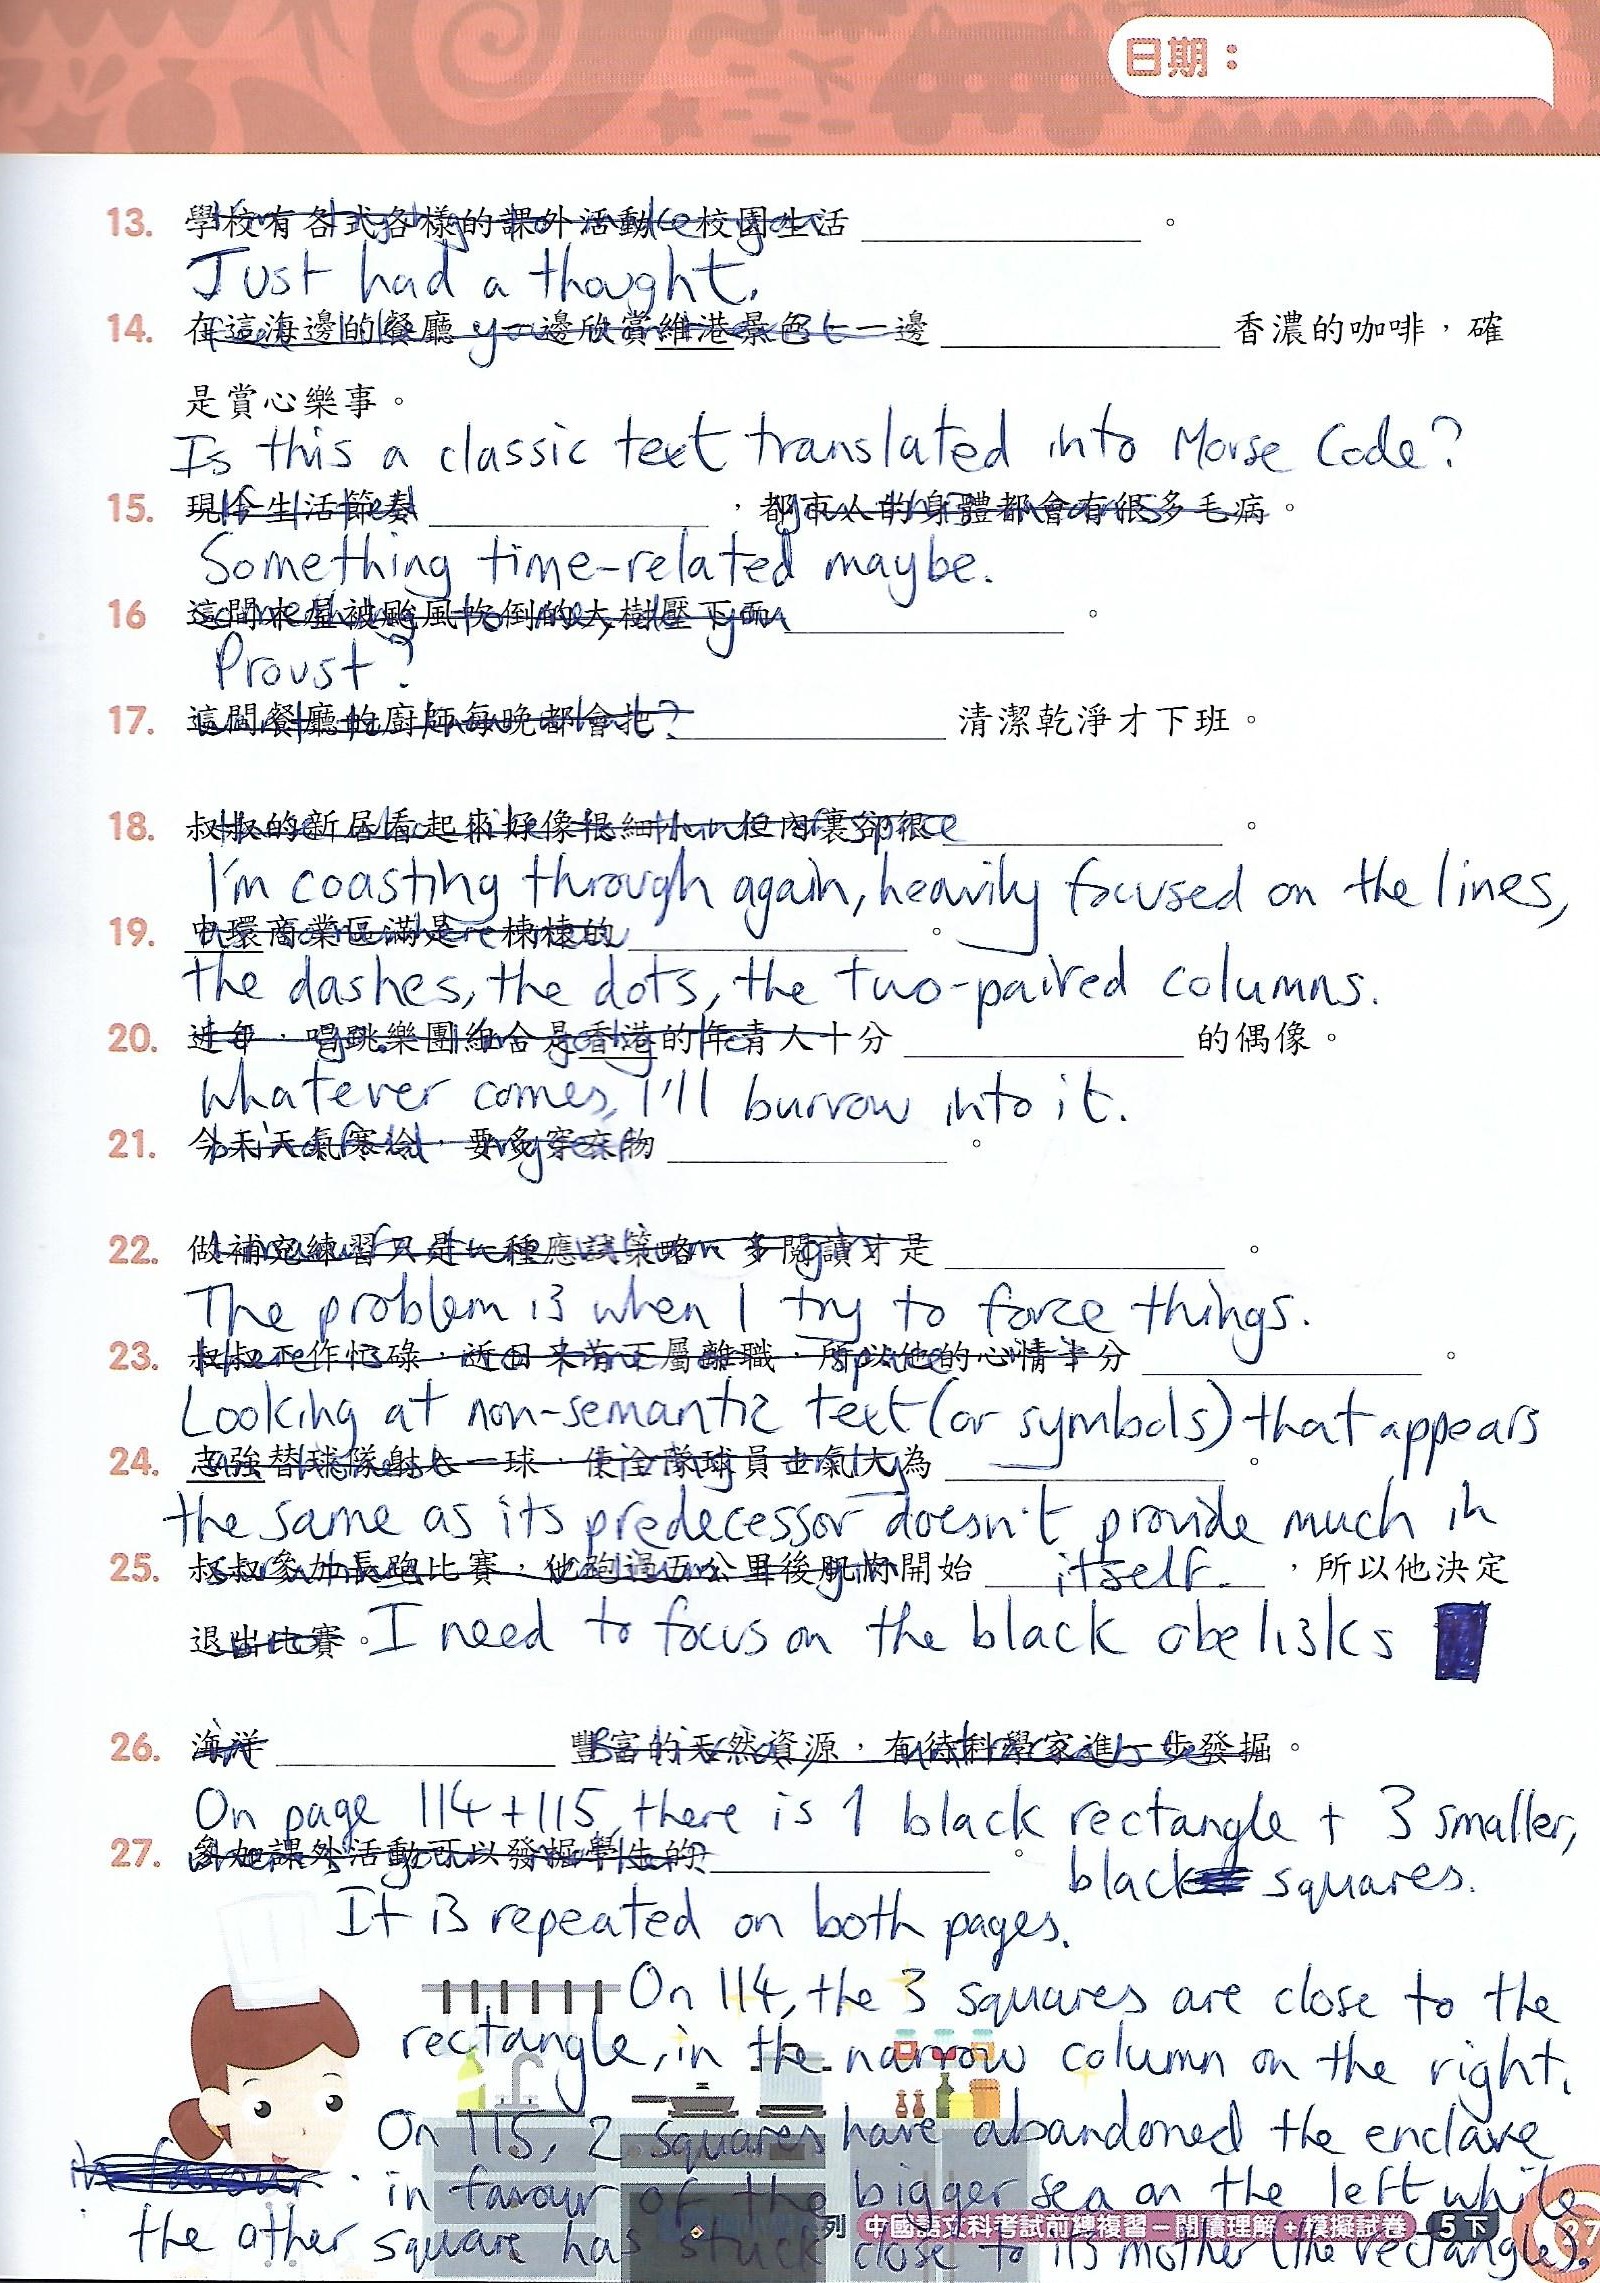 日期：
13. 學校有各式各樣的課外活動，校園生活 ____________ 。
Just had a thought.
14. 在這海邊的餐廳，一邊欣賞維港景色，一邊 ____________ 香濃的咖啡，確
是賞心樂事。
Is this a classic text translated into Morse Code?
15. 現今生活節奏 ____________ ，都市人的身體都會有很多毛病。
Something time-related maybe.
16 這間木屋被颱風吹倒的大樹壓下而 ____________ 。
Proust?
17. 這間餐廳的廚師每晚都會把 ____________ 清潔乾淨才下班。
18. 叔叔的新居看起來好像很細小，但內裏卻很 ____________ 。
I'm coasting through again, heavily focused on the lines,
19. 中環商業區滿是一棟棟的 ____________ 。
the dashes, the dots, the two-paired columns.
20. 近年，唱跳樂團組合是香港的年青人十分 ____________ 的偶像。
Whatever comes, I'll burrow into it.
21. 今天天氣寒冷，要多穿衣物 ____________ 。
22. 做補充練習只是一種應試策略，多閱讀才是 ____________ 。
The problem is when I try to force things.
23. 叔叔工作忙碌，近日又有下屬離職，所以他的心情十分 ____________ 。
Looking at non-semantic text (or symbols) that appears
24. 志強替球隊射入一球，使全隊球員士氣大為 ____________ 。
the same as its predecessor doesn't provide much in
25. 叔叔參加長跑比賽，他跑過五公里後肌肉開始 itself. ，所以他決定
退出比賽。 I need to focus on the black obelisks
26. 海洋 ____________ 豐富的天然資源，有待科學家進一步發掘。
On page 114+115, there is 1 black rectangle + 3 smaller,
27. 參加課外活動可以發掘學生的 ____________ 。
black squares.
It is repeated on both pages.
On 114, the 3 squares are close to the
rectangle, in the narrow column on the right.
On 115, 2 squares have abandoned the enclave
in favour
in favour of the bigger sea on the left while
the other square has stuck close to its mother (the rectangle).
列 中國語文科考試前總複習－閱讀理解＋模擬試卷 5下